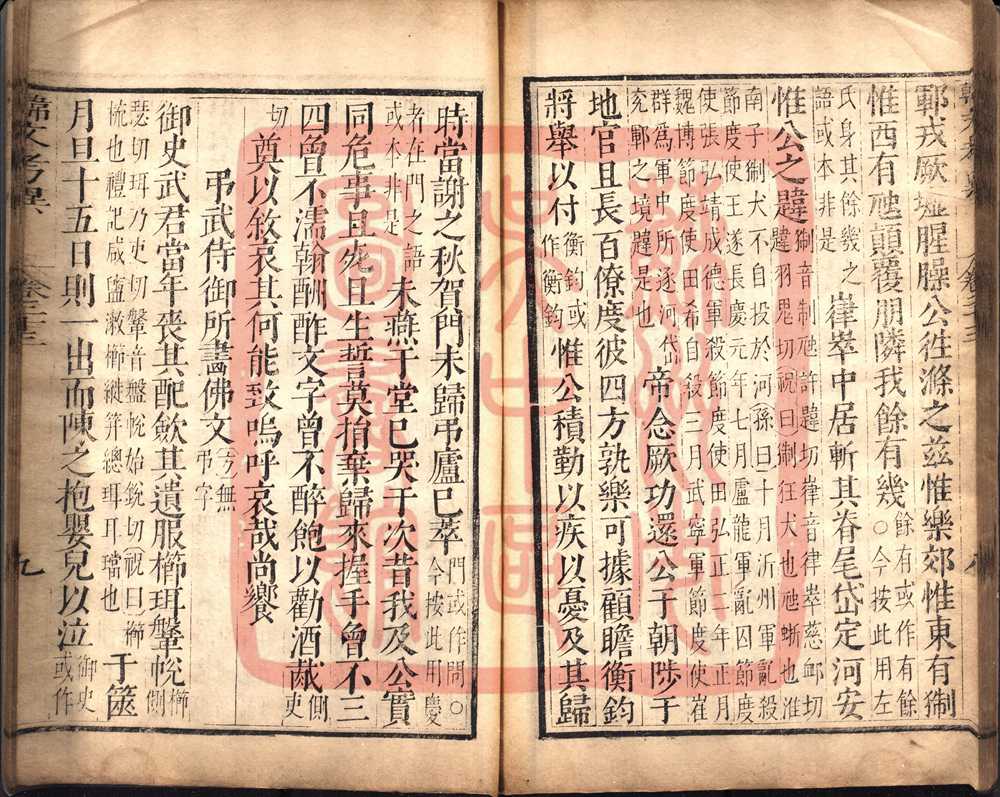 鄆戎厥墟腥臊公往滌之茲惟樂郊惟東有猘
惟西有虺顛覆朋隣我餘有幾餘有或作有餘○今按此用左
氏身其餘幾之語或本非是崔崒中居斬其脊尾岱定河安
惟公之韙猘音制虺許韙切崔音律崒慈卹切韙羽鬼切祝曰猘狂犬也虺蜥也淮
南子猘犬不自投於河孫曰十月沂州軍亂殺節度使王遂長慶元年七月盧龍軍亂囚節度
使張弘靖成德軍殺節度使田弘正二年正月魏博節度使田希自殺三月武寧軍節度使崔
群爲軍中所逐河岱兖鄆之境韙是也帝念厥功還公于朝陟于
地官且長百僚度彼四方孰樂可據顧瞻衡鈞
將舉以付衡鈞或作衡鈞惟公積勤以疾以憂及其歸
時當謝之秋賀門未歸弔廬已萃門或作問○今按此用慶
者在門之語或本非是未燕于堂已哭于次昔我及公實
同危事且死且生誓莫捐棄歸來握手曾不三
四曾不濡翰酬酢文字曾不醉飽以勸酒胾側吏
切奠以敘哀其何能致嗚呼哀哉尚饗
弔武侍御所畫佛文方無弔字
御史武君當年喪其配斂其遺服櫛珥鞶帨櫛側
瑟切珥乃吏切鞶音盤帨始銳切祝曰櫛梳也禮記咸盥漱櫛縰笄總珥耳璫也于篋
月旦十五日則一出而陳之抱嬰兒以泣御史或作
韓文考異
卷二十三
九